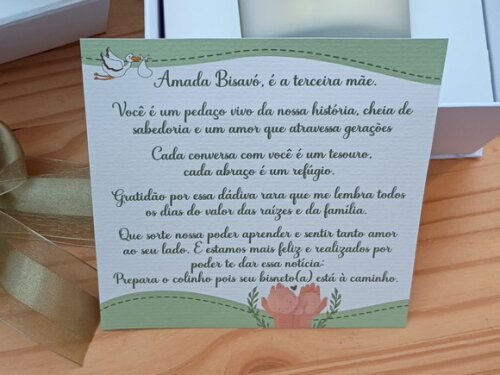 Amada Bisavó, é a terceira mãe.
Você é um pedaço vivo da nossa história, cheia de
sabedoria e um amor que atravessa gerações
Cada conversa com você é um tesouro,
cada abraço é um refúgio.
Gratidão por essa dádiva rara que me lembra todos
os dias do valor das raízes e da família.
Que sorte nossa poder aprender e sentir tanto amor
ao seu lado. E estamos mais feliz e realizados por
poder te dar essa notícia:
Prepara o colinho pois seu bisneto(a) está à caminho.